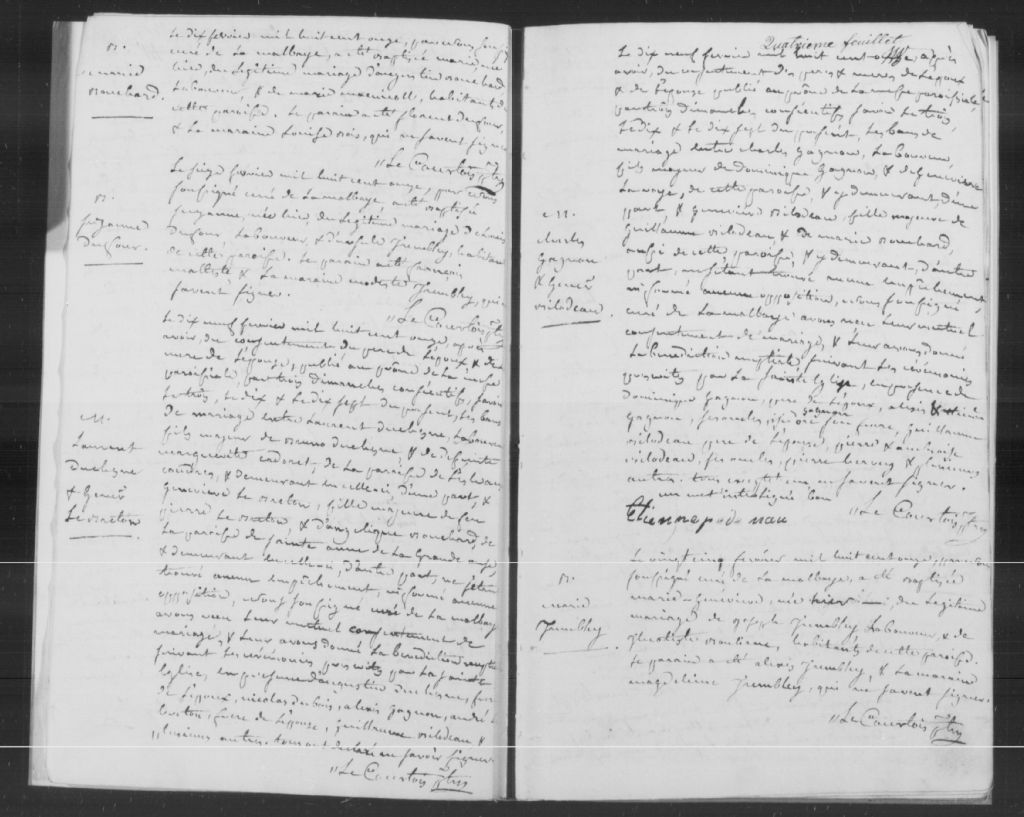 Le dix fevrier mil huit cent onze, par nous soussigné
curé de La malbaye, a été baptisé marie, née
hier, du Legitime mariage d'augustin Bouchard
Laboureur, & de marie habitants de
cette paroisse. Le parain a été florent Dufour,
& La maraine Louise qui ne savent signer
"Le Courtois ptre
B.
marie
Bouchard.
Le seize fevrier mil huit cent onze, par nous
soussigné curé de La malbaye a été baptisé
suzanne, née hier du Legitime mariage de
Dufour Laboureur, & d'ursule Trembley, habitans
de cette paroisse. Le parain a été francois
maltais & La maraine modeste Trembley, qui ne
savent signer.
"Le Courtois ptre
B.
suzanne
Dufour.
Le dix neuf fevrier mil huit cent onze, après
avoir, du consentement du pere de L'epoux & de la
mere de L'epouse, publié au prône de La messe
paroissiale, par trois dimanches consécutifs, savoir
Le trois, Le dix & Le dix sept du présent, Les bans
de mariage entre Laurent duchesne, Laboureur
fils majeur de Bruno duchesne, & de defunte
marguerite cadoret, de La paroisse de L'isle aux
coudres, & demeurant en celle ci, d'une part, &
Genevieve Le Breton, fille majeure de feu
pierre Le Breton & d'angelique Bouchard, de
La paroisse de sainte anne de La Grande
& demeurant en celle ci, d'autre part, ne s'étant
trouvé aucun empêchement, ni formé aucune
opposition, nous soussigné curé de La malbaye
avons reçu Leur mutuel consentement de
mariage, & Leur avons donné La benediction nuptiale
suivant Les ceremonies prescrites par La sainte
Eglise, en presence d'augustin duchesne, frere
de L'epoux, nicolas dubois, alexis Gagnon, andré Le
breton, frere de L'epouse, Guillaume Bilodeau &
plusieurs autres. tous ont declaré ne savoir signer
"Le Courtois ptre
M.
Laurent
duchesne
& Genev.
Le Breton
Quatrieme feuillet
Le dix neuf fevrier mil huit cent onze, après
avoir, du consentement des peres & meres de L'epoux
& de L'epouse publié au prône de La messe paroissiale,
par trois dimanches consécutifs, savoir Le trois,
Le dix & Le dix sept du present, Les bans de
mariage entre charles Gagnon, Laboureur,
fils majeur de Dominique Gagnon, & de Genevieve
Lavoye, de cette paroisse, & y demeurant, d'une
part, & Genevieve Bilodeau, fille majeure de
Guillaume Bilodeau & de marie Bouchard,
aussi de cette paroisse, & y demeurant, d'autre
part, ne s'étant trouvé aucun empêchement
ni formé aucune opposition, nous soussigné,
curé de La malbaye avons reçu Leur mutuel
consentement de mariage, & Leur avons donné
La benediction nuptiale suivant Les ceremonies
prescrites par La sainte Eglise, en presence de
Dominique Gagnon, pere de L'epoux, alexis
Gagnon, ses oncles, isidore gagnon son frere, Guillaume
Bilodeau pere de L'epouse, pierre & ambroise
Bilodeau, ses oncles, pierre hervey & plusieurs
autres. tous excepté un ne savent signer.
un mot interligné bon
Etienne "Le Courtois ptre
M.
charles
Gagnon
& Genev.
Bilodeau.
Le vingt cinq fevrier mil huit cent onze, par nous
soussigné curé de La malbaye, a été baptisée
marie Genevieve, née hier, du Legitime
mariage de joseph Trembley Laboureur, & de
habitants de cette paroisse.
Le parain a été alexis Trembley, & La maraine
magdeleine Trembley, qui ne savent signer.
"Le Courtois ptre
B.
marie
Trembley